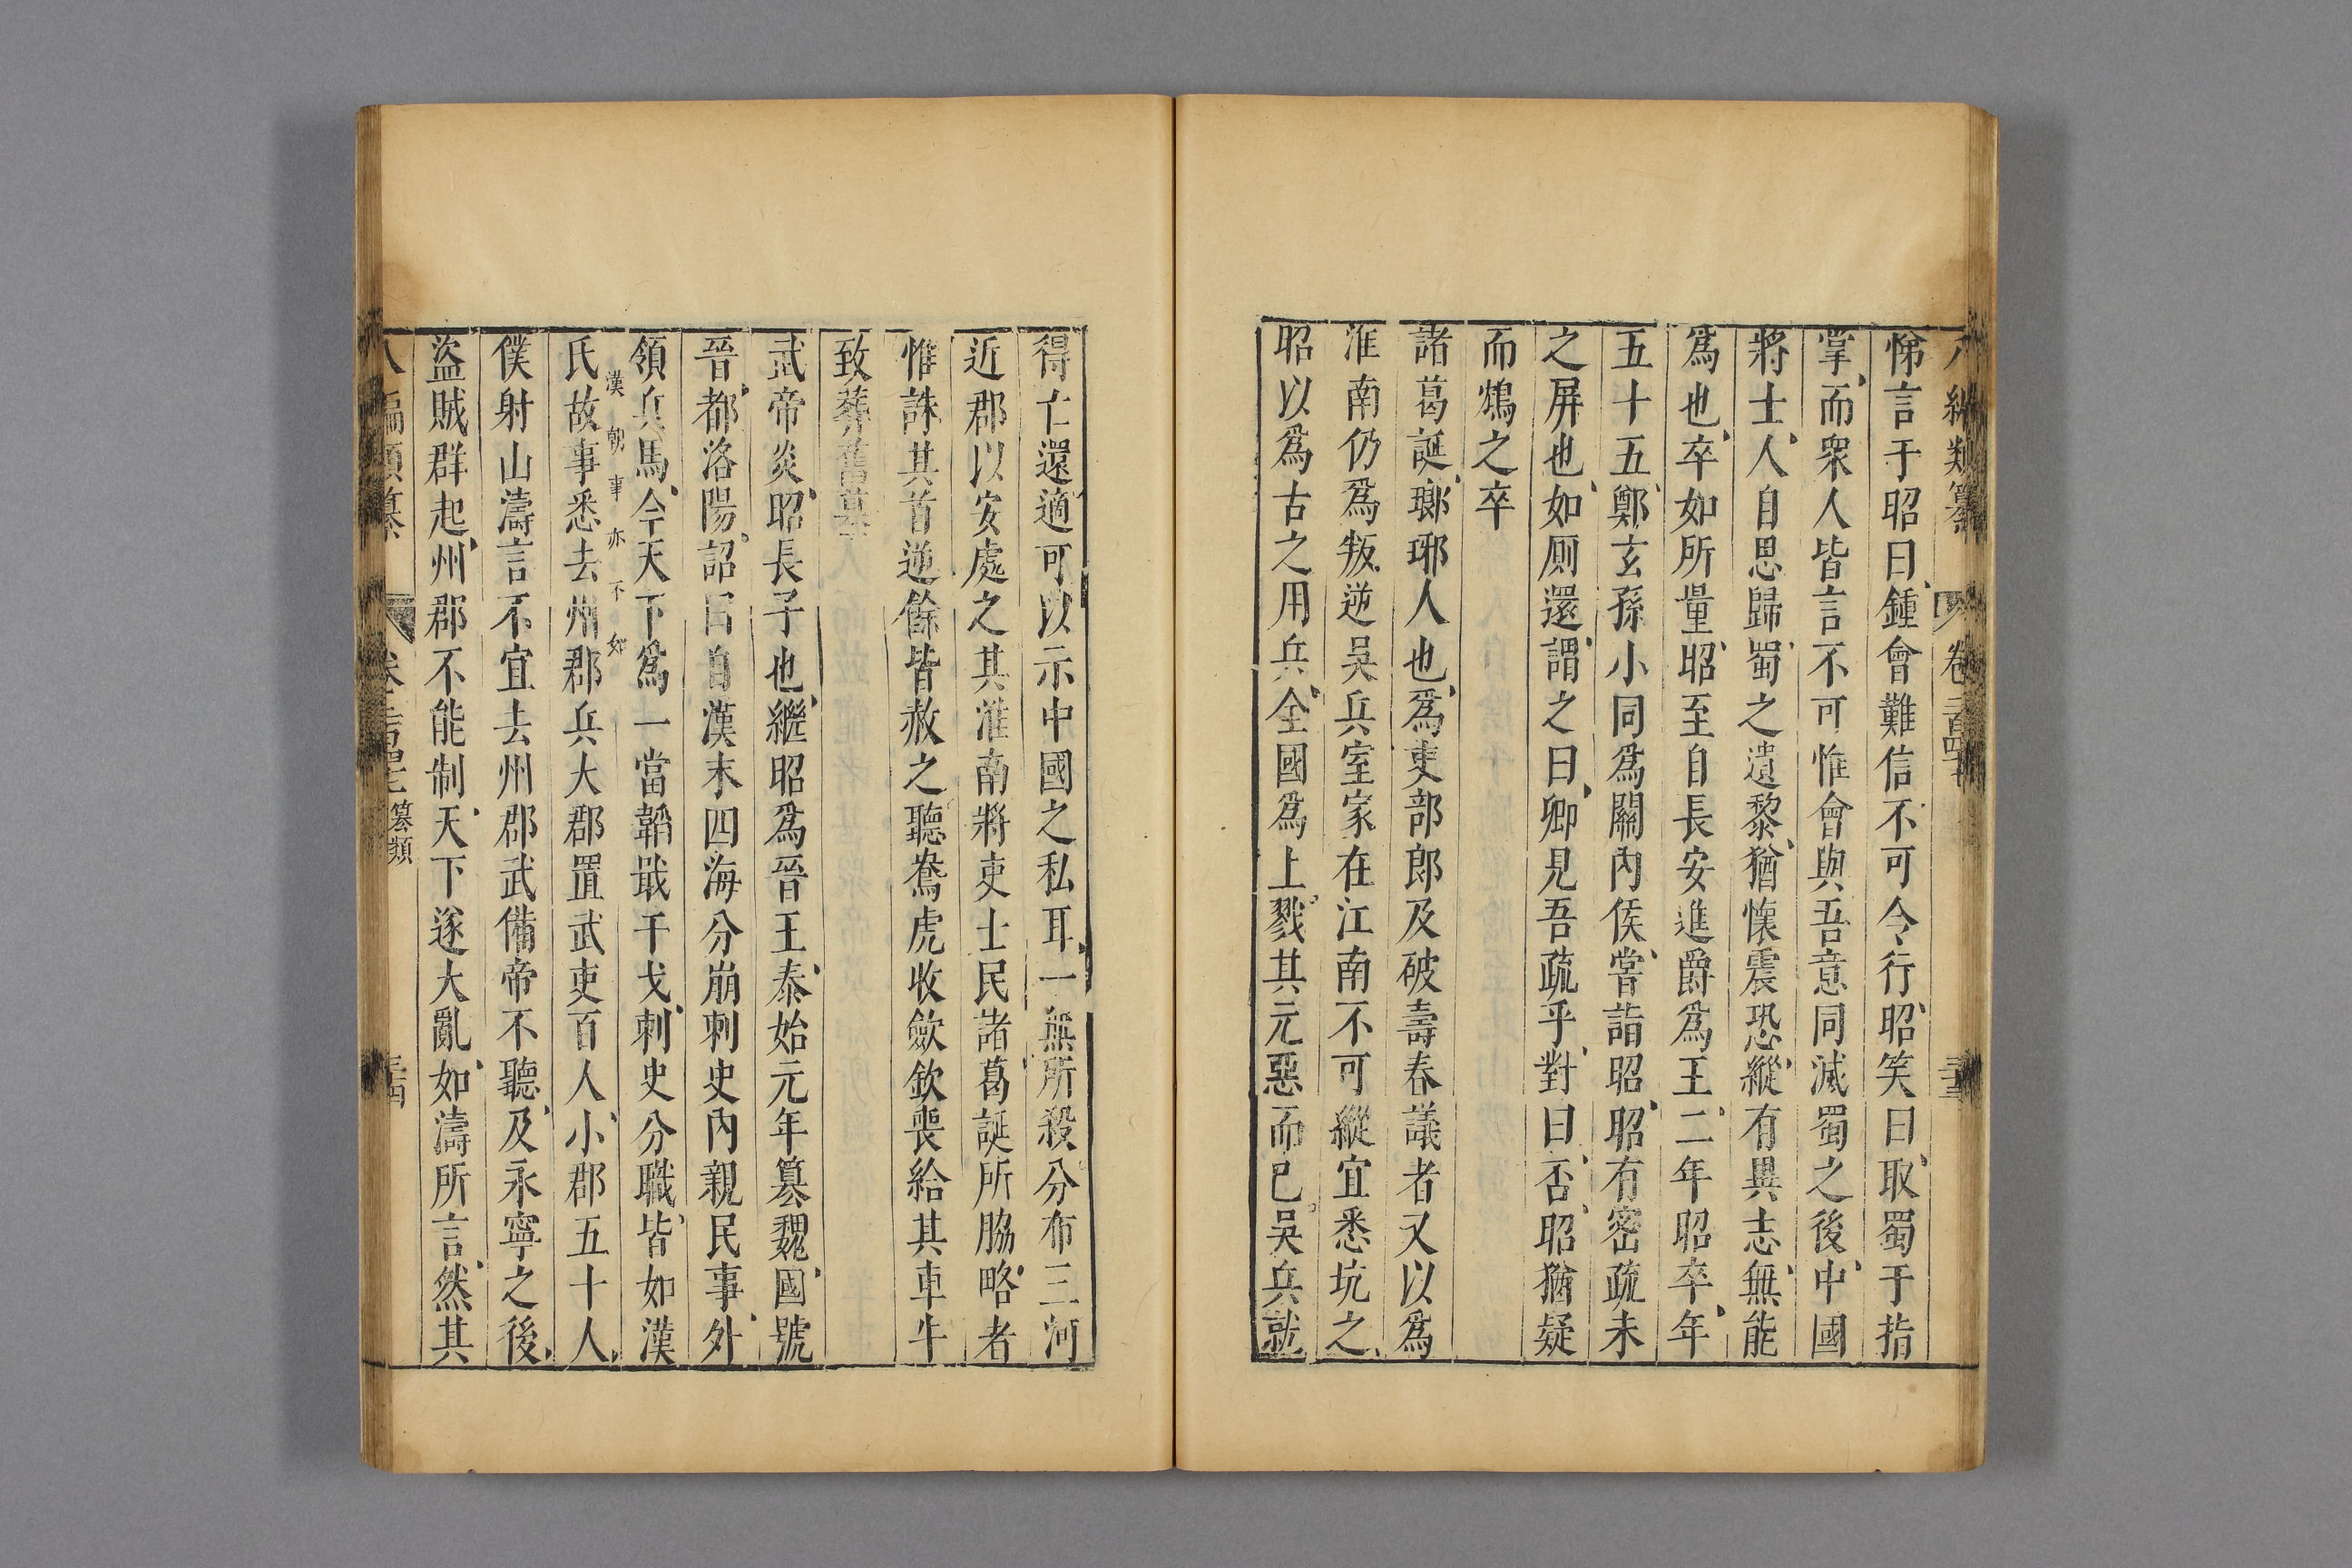 八編類纂 卷二百四十
悌言于昭曰鍾會難信不可令行昭笑曰取蜀于指
掌而衆人皆言不可惟會與吾意同滅蜀之後中國
將士人自思歸蜀之遺黎猶懷震恐縱有異志無能
爲也卒如所量昭至自長安進爵爲王二年昭卒年
五十五鄭玄孫小同爲關內侯嘗詣昭昭有密疏未
之屏也如厠還謂之曰卿見吾疏乎對曰否昭猶疑
而鴆之卒
諸葛誕瑯琊人也爲吏部郎及破壽春議者又以爲
淮南仍爲叛逆吳兵室家在江南不可縱宜悉坑之
昭以爲古之用兵全國爲上戮其元惡而已吳兵就
得亡還適可以示中國之私耳一無所殺分布三河
近郡以安處之其淮南將吏士民諸葛誕所脇略者
惟誅其首逆餘皆赦之聽鴦虎收歛欽喪給其車牛
致葬舊墓
武帝炎昭長子也繼昭爲晉王泰始元年篡魏國號
晉都洛陽詔曰自漢末四海分崩刺史內親民事外
領兵馬今天下爲一當韜戢干戈刺史分職皆如漢
漢朝事亦不如
氏故事悉去州郡兵大郡置武吏百人小郡五十人
僕射山濤言不宜去州郡武備帝不聽及永寧之後
盜賊群起州郡不能制天下遂大亂如濤所言然其
八編類纂 卷二百四十 篡類 三十四